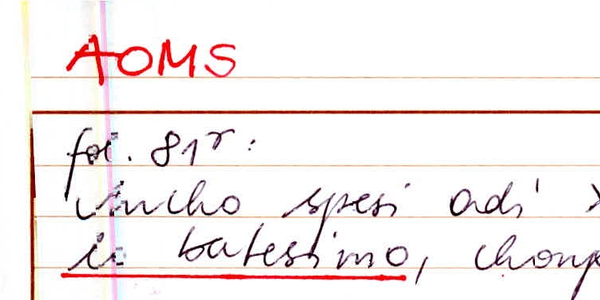 AOMS
fol. 81r:
Ancho spesi adi
in batessimo, chomp